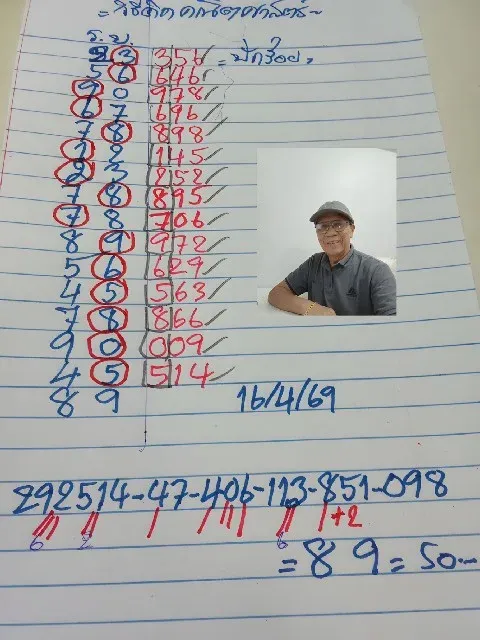 = วิธีคิดคณิตศาสตร์ =
ร. บ.
2 3 356 ✓ = ปักร้อย,
5 6 646 ✓
9 0 978 ✓
6 7 696 ✓
7 8 898 ✓
1 2 145 ✓
2 3 852 ✓
7 8 895 ✓
7 8 706 ✓
8 9 972 ✓
5 6 629 ✓
4 5 563 ✓
7 8 866 ✓
9 0 009 ✓
4 5 514 ✓
8 9
16/4/69
292514-47-406-113-851-098
6 2 6 +2
= 89 = 50.-